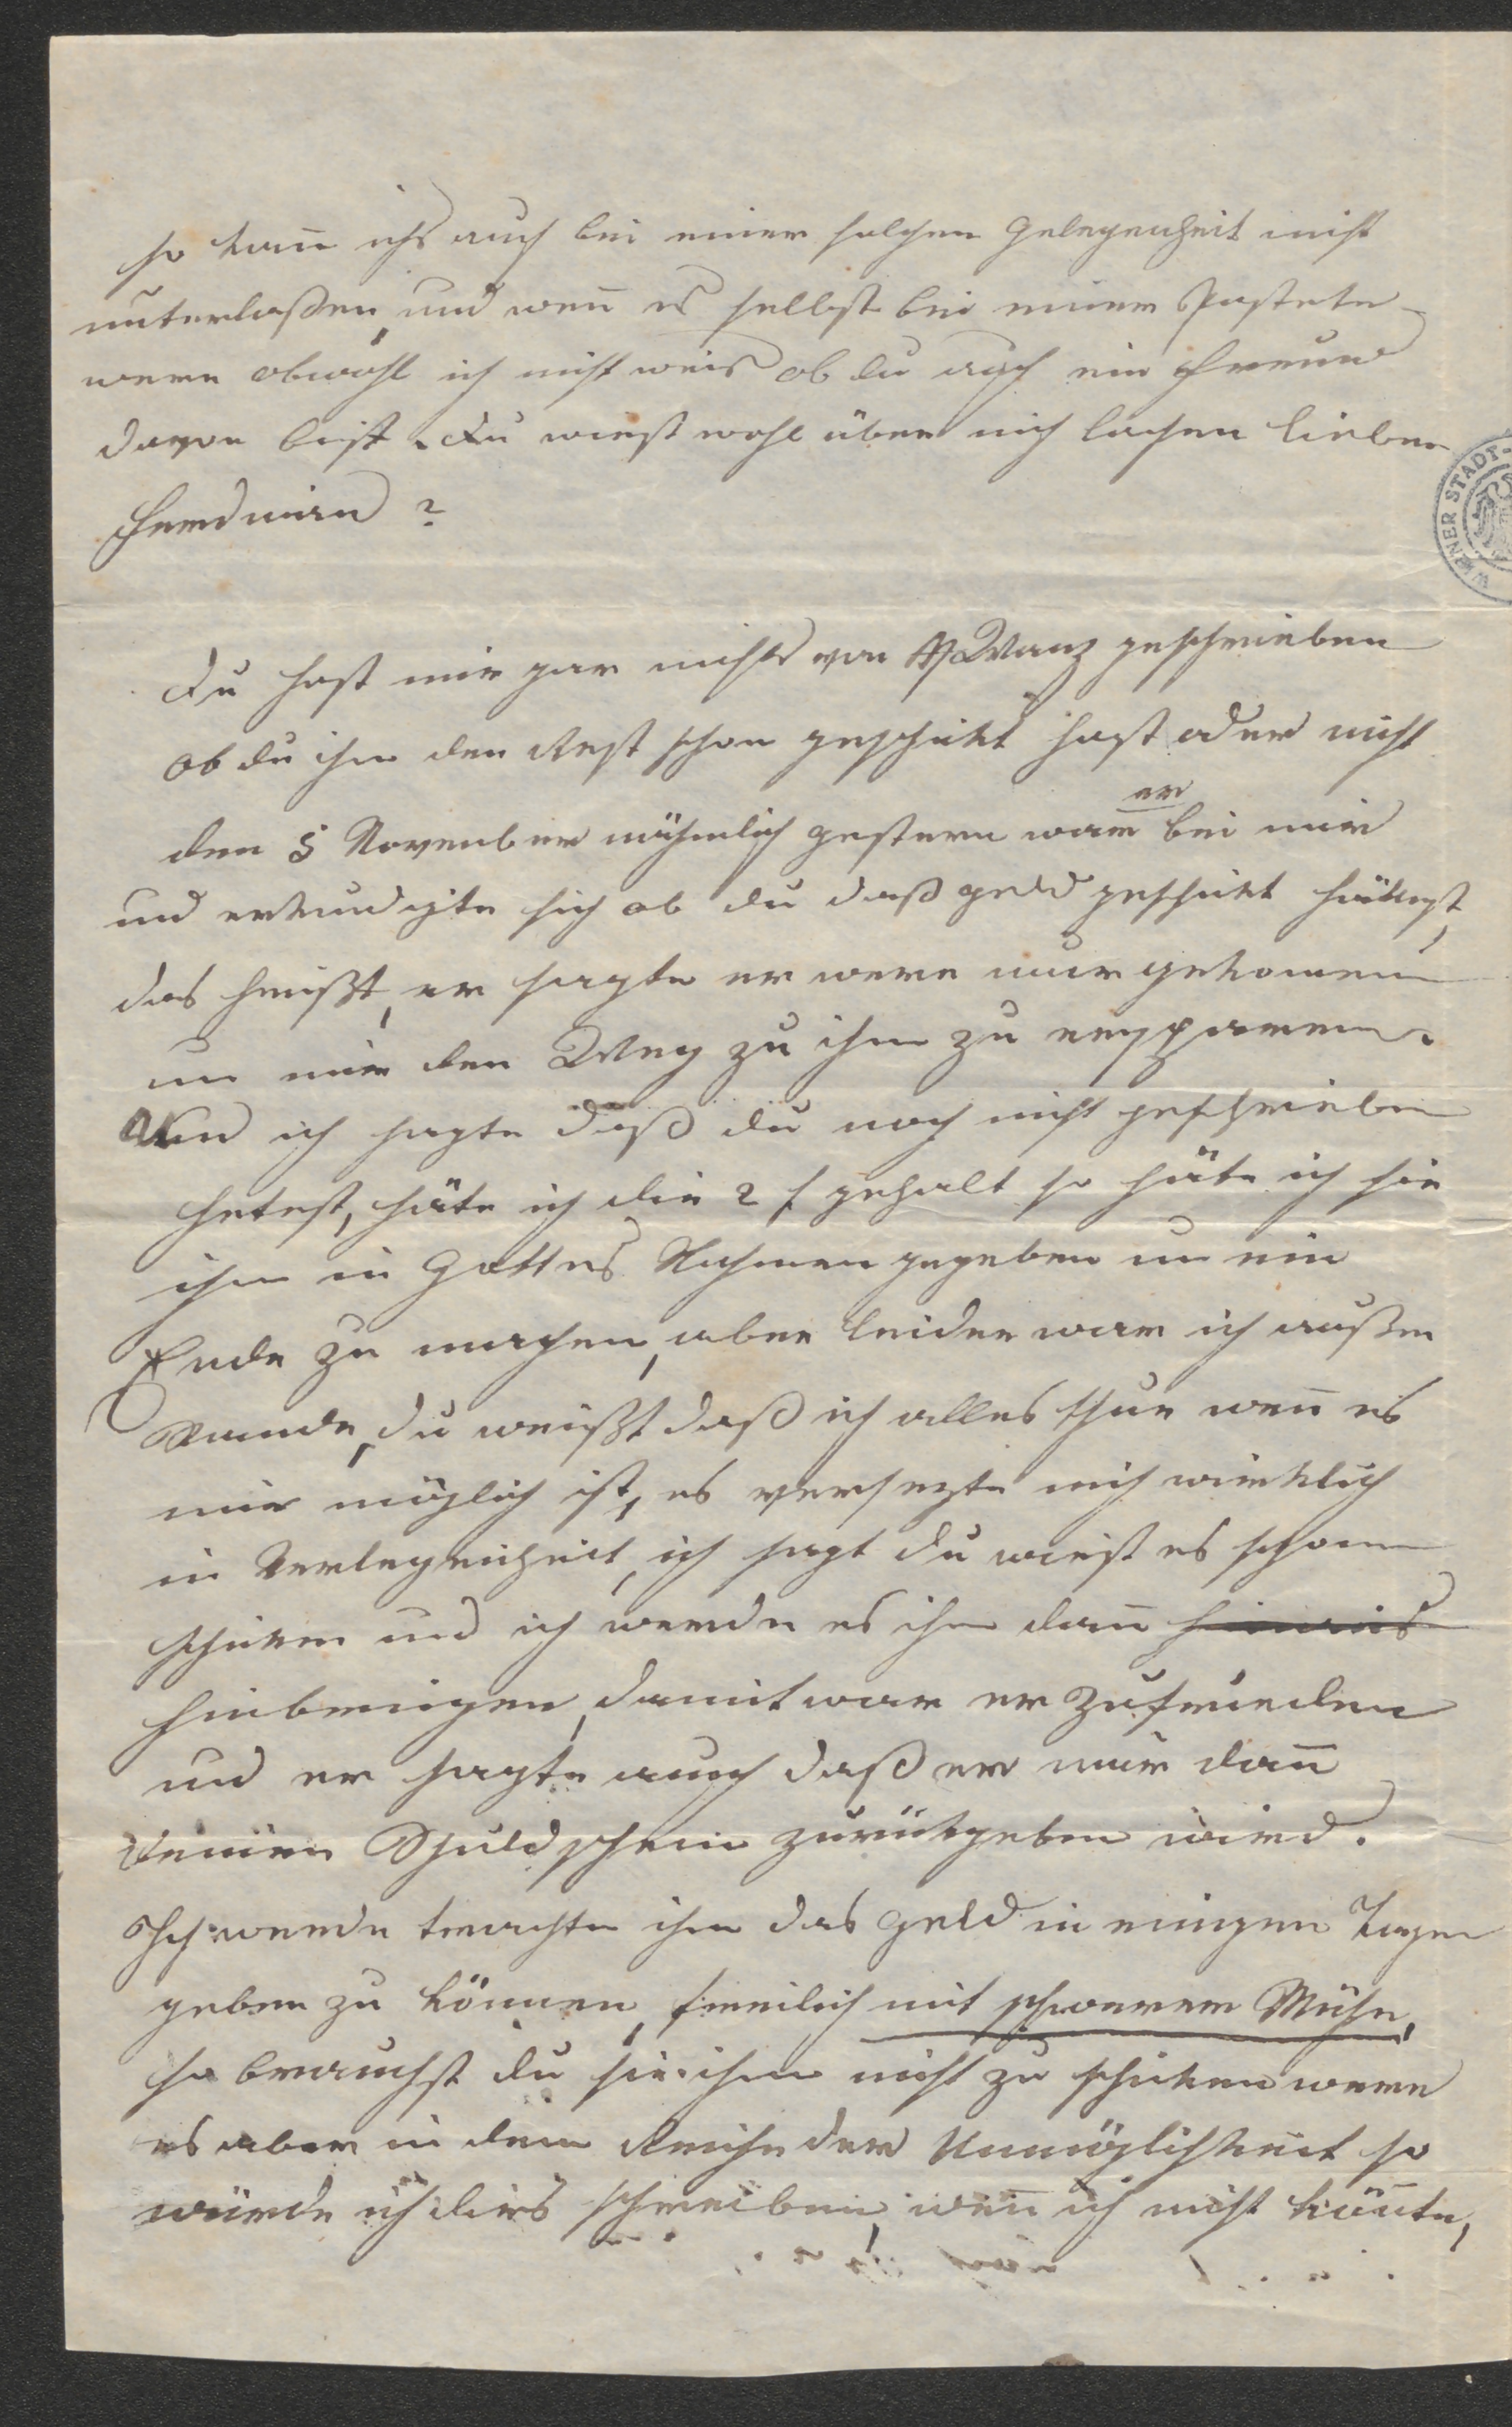 so kan̄ ichs auch bei einer solchen Gelegenheit nicht
unterlaßen, und wen̄ es selbst bei einer Pastete
were obwohl ich nicht weis ob du auch ein Freund
davon bist. Du wirst wohl über mich lachen lieber
Ferdinand?
Du hast mir gar nichts von H Wanz geschrieben
ob du ihm den Rest schon geschickt hast oder nicht
den 5 November nähmlich gestern war er bei mir
und erkundigte sich ob du daß geld geschickt hättest,
das heißt, er sagte er were nur gekomen
um mir den Weg zu ihm zu ersparen.
Und ich sagte daß du noch nicht geschrieben
hetest, häte ich die 2 f gehabt so häte ich sie
ihm in Gottes Nahmen gegeben um ein
Ende zu machen, aber leider war ich außer
Stande, du weißt daß ich alles thue wen̄ es
mir möglich ist, es versezte mich wirklich
in Verlegenheit, ich sagt du wirst es schon
schicken und ich werde es ihm dan̄ hinaus
hinbringen, damit war er zufrieden
und er sagte auch daß er mir dan̄
deinen Schuldschein zurückgeben wird.
Ich werde trachte ihm das Geld in einigen Tagen
geben zu können, freilich mit schwerer Mühe,
so brauchst du sie ihm nicht zu schicken were
es aber in dem Reiche der Unmöglichkeit so
würde ich dirs schreiben, wen̄ ich nicht kön̄te,
WIENER STADT-